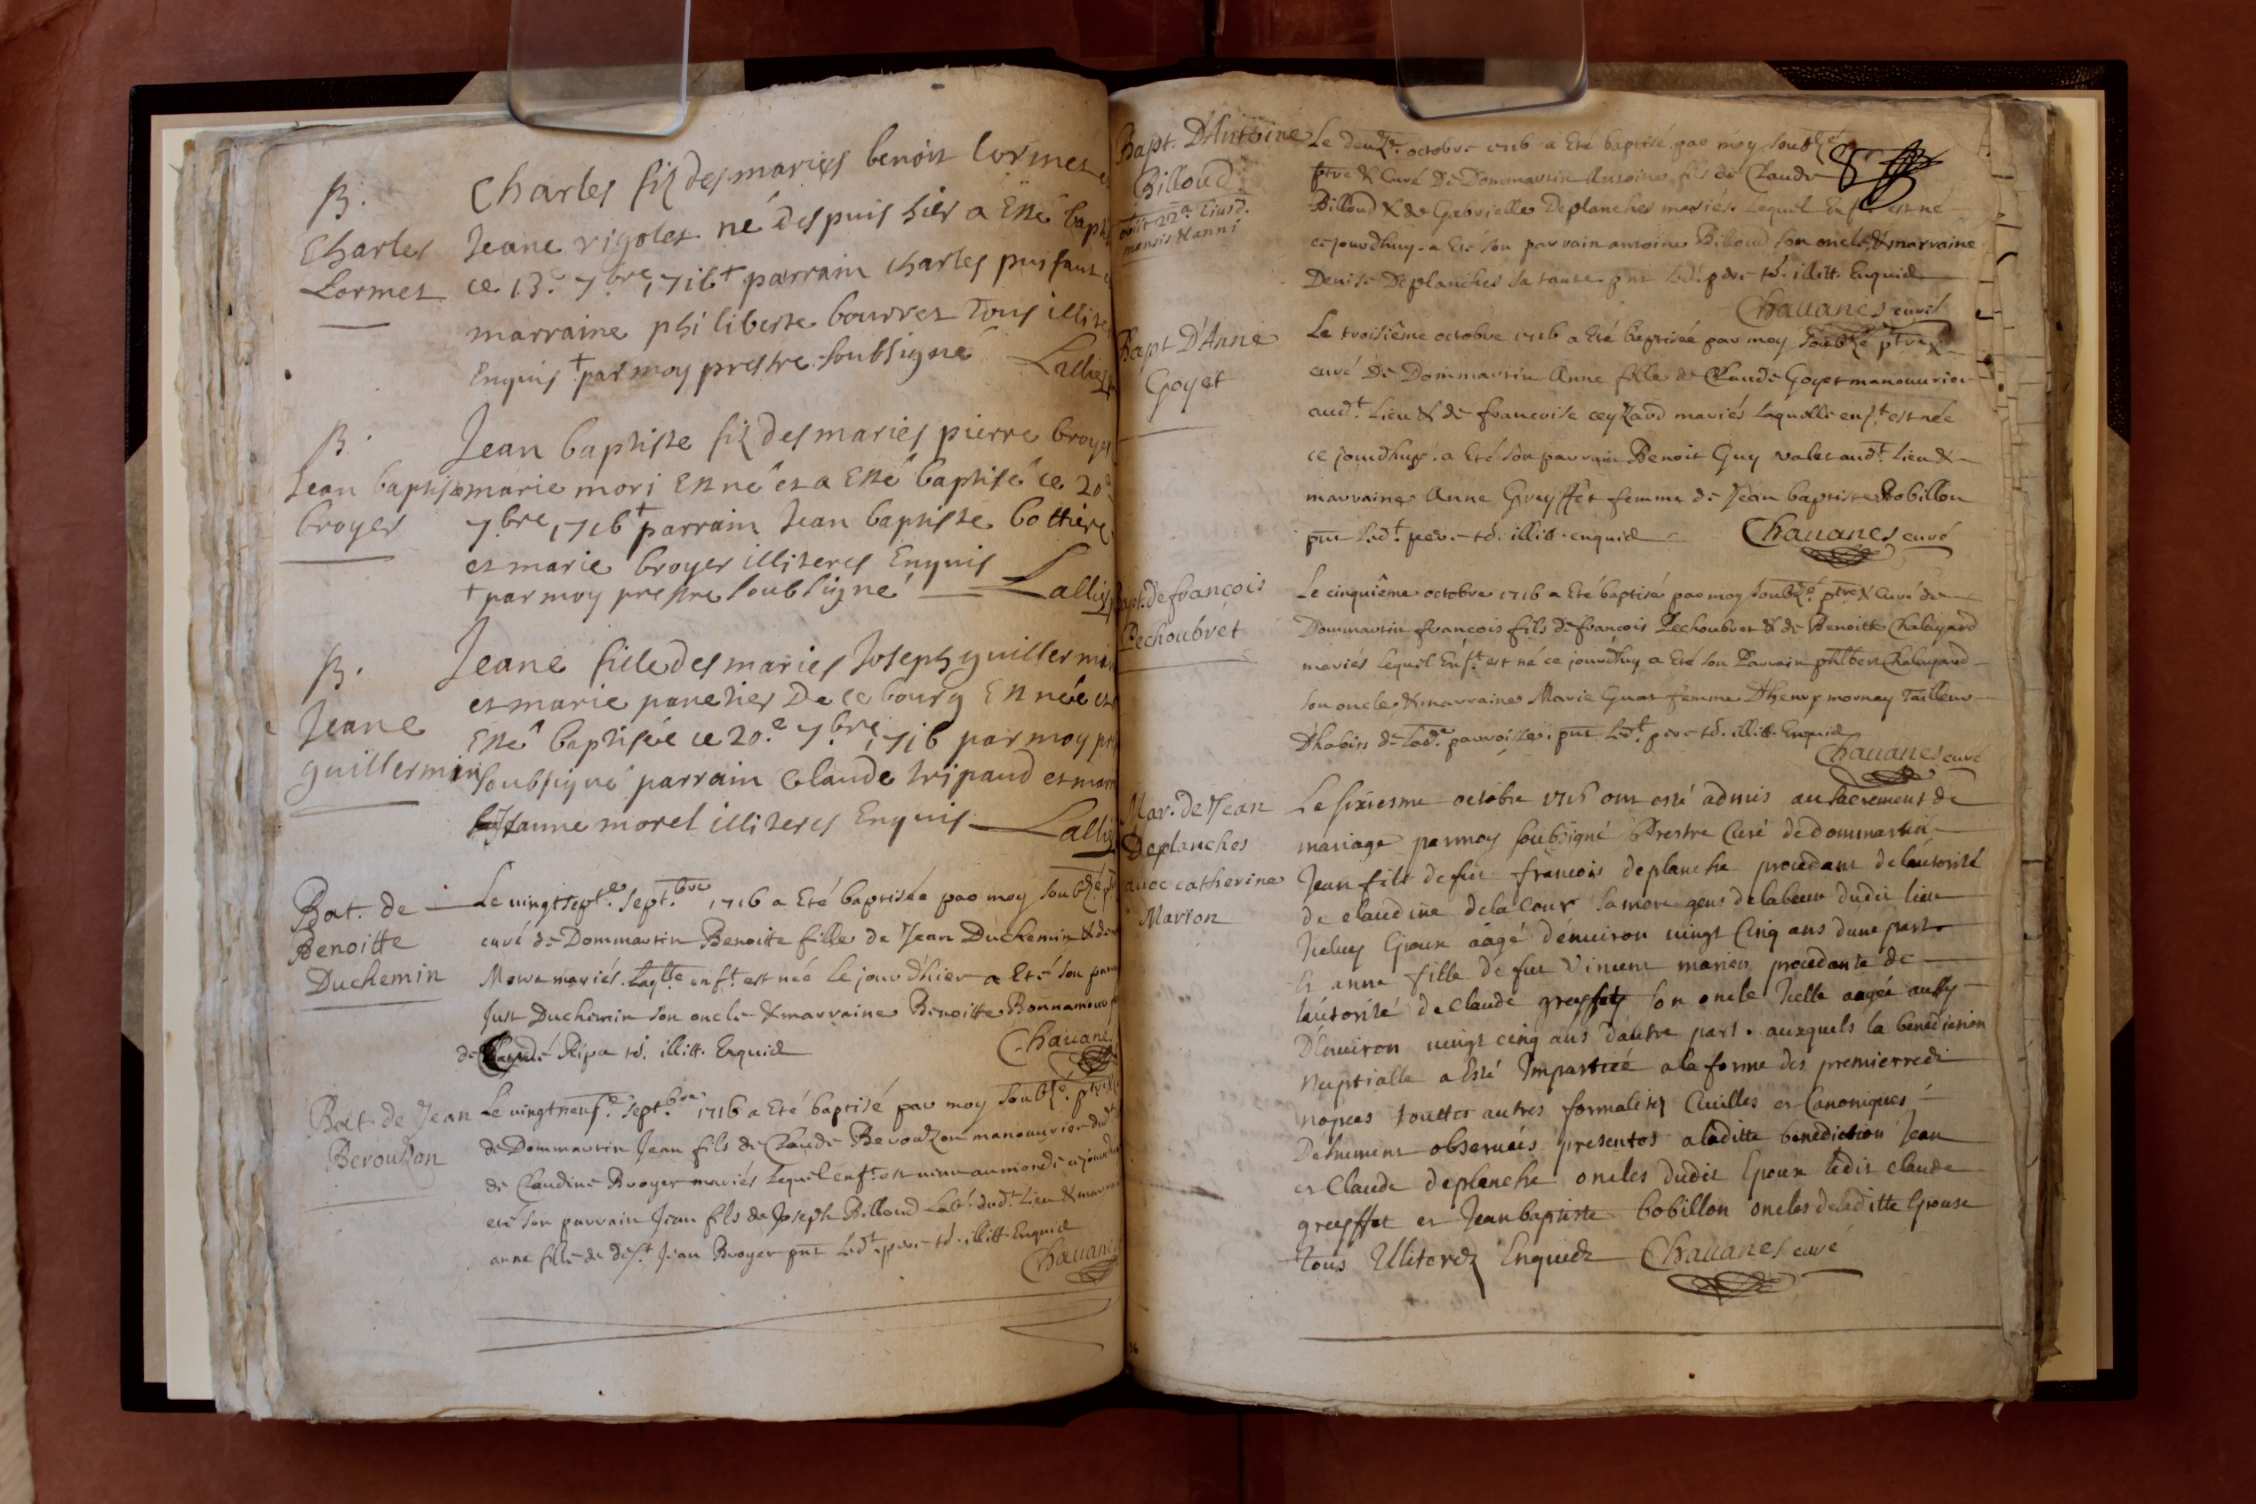 B.
Charles
Lormet
Charles filz des mariés benoit Lormet
Jeane rigolet né despuis hier a Esté
ce 13.e 7.bre 1716 + parrain charles
marraine philiberte bourret Tous
Enquis + par moy prestre soubsigné
B.
Jean baptiste
broyer
Jean baptiste filz des mariés pierre
marie mori Est né et a Esté baptisé ce 20
7.bre 1716 + parrain Jean baptiste bottiere
et marie broyer illiteres Enquis
+ par moy prestre soubsigné
B.
Jeane
guillermin
Jeane fille des mariés Joseph guillermin
et marie panetier De ce bourg Est née et
Esté baptisée ce 20.e 7.bre 1716 par moy
soubsigné parrain Claude tripaud et
Jeanne morel illiteres Enquis
Bat. de
Benoitte
Duchemin
Le vingtsept.e sept.bre 1716 a Eté baptisée par moy
curé de Dommartin Benoitte fille de Jean Duchemin & de
mariés. Laq.lle enf.t est née le jour d'hier a Eté son
Just Duchemin son oncle & marraine Benoitte Bonnamour
de Claude Ripa td. illitt. Enquid
Bat. de Jean
Berouzon
Le vingtneuf.e sept.bre 1716 a Eté baptisé par moy
de Dommartin Jean fils de Claude Berouzon manouvrier
de Claudine Broyer mariés Lequel enf.t est venu au monde
eté son parrain Jean fils de Joseph Billoud dud.t Lieu &
anne fille de def.t Jean Broyer pnt Led.t pere td. illitt. Enquid
Bapt. D'Antoine
Billoud
Le octobre 1716 a Eté baptisé par moy
ptre & Curé De Dommartin Antoine fils de Claude
Billoud & de Gabrielle Deplanches mariés. Lequel est né
cejourdhuy. a Eté son parrain antoine Billoud son oncle & marraine
Denise Deplanches sa tante pnt led. pere td. illitt. Enquid
Chauanes curé
Bapt D'Anne
Goyet
Le troisième octobre 1716 a Eté baptisée par moy ptre &
curé De Dommartin Anne fille de Claude Goyet manouurier
aud.t Lieu & de francoise mariés Laquelle enf.t est née
ce jourdhuy. a Eté son parrain Benoit Guy valet aud.t Lieu &
marraine Anne Greyffet femme de Jean baptiste Bobillon
pnt Led.t pere td. illitt. enquid Chauanes curé
de françois
Pechoubret
Le cinquième octobre 1716 a Eté baptisé par moy ptre & Curé de
Dommartin francois fils de francois Pechoubret & de Benoitte Chalayard
mariés lequel Enf.t est né ce jourdhuy a Eté son Parrain Chalayard
son oncle, & marraine Marie femme D'henry mornay Tailleur
D'habits de paroisse. pnt Led.t pere td. illitt. Enquid
Chauanes curé
Mar. de Jean
Deplanches
avec catherine
Marion
Le sixiesme octobre 1716 ont esté admis au sacrement de
mariage par moy soubsigné Prestre Curé de dommartin
Jean fils de fut francois deplanche procedant de lautorité
de claudine delacour sa mere gens de labeur dudit lieu
Iceluy Epoux aagé denuiron vingt Cinq ans dune part
Et anne fille de fut Vincent marion procedante de
lautorité de Claude greyffet son oncle Icelle aagée aussy
Denuiron vingt cinq ans dautre part. auxquels la benediction
nuptialle a Esté Impartiée a la forme des
nopces touttes autres formalitez Ciuilles et Canoniques
Deüement obseruées presentes a laditte benediction Jean
et Claude deplanche oncles dudit Epoux ledit claude
greyffet et Jean baptiste bobillon oncles de laditte Epouse
Tous Illiterez Enquidz Chauanes curé